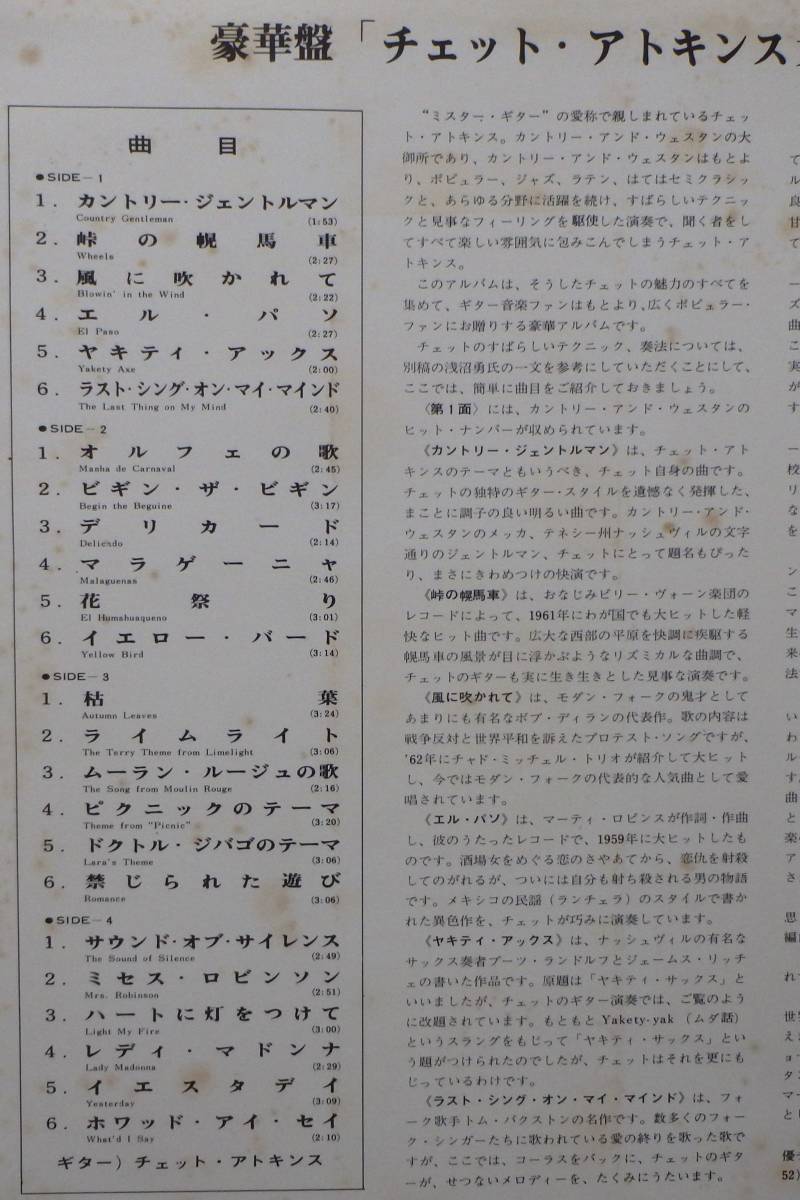 豪華盤「チェット・アトキンス
曲目
●SIDE−1
1．カントリー・ジェントルマン
Country Gentleman (1:53)
2．峠の幌馬車
Wheels (2:27)
3．風に吹かれて
Blowin' in the Wind (2:22)
4．エル・パソ
El Paso (2:27)
5．ヤキティ・アックス
Yakety Axe (2:00)
6．ラスト・シング・オン・マイ・マインド
The Last Thing on My Mind (2:40)
●SIDE−2
1．オルフェの歌
Manha de Carnaval (2:45)
2．ビギン・ザ・ビギン
Begin the Beguine (3:17)
3．デリカード
Delicado (2:14)
4．マラゲーニャ
Malaguenas (2:46)
5．花祭り
El Humahuaqueno (3:01)
6．イエロー・バード
Yellow Bird (3:14)
●SIDE−3
1．枯葉
Autumn Leaves (3:24)
2．ライムライト
The Terry Theme from Limelight (3:06)
3．ムーラン・ルージュの歌
The Song from Moulin Rouge (2:16)
4．ピクニックのテーマ
Theme from "Picnic" (3:20)
5．ドクトル・ジバゴのテーマ
Lara's Theme (3:06)
6．禁じられた遊び
Romance (3:06)
●SIDE−4
1．サウンド・オブ・サイレンス
The Sound of Silence (2:49)
2．ミセス・ロビンソン
Mrs. Robinson (2:51)
3．ハートに灯をつけて
Light My Fire (3:00)
4．レディ・マドンナ
Lady Madonna (2:29)
5．イエスタデイ
Yesterday (3:09)
6．ホワッド・アイ・セイ
What'd I Say (2:10)
ギター）チェット・アトキンス
“ミスター・ギター”の愛称で親しまれているチェッ
ト・アトキンス。カントリー・アンド・ウェスタンの大
御所であり、カントリー・アンド・ウェスタンはもとよ
り、ポピュラー、ジャズ、ラテン、はてはセミクラシッ
クと、あらゆる分野に活躍を続け、すばらしいテクニッ
クと見事なフィーリングを駆使した演奏で、聞く者をし
てすべて楽しい雰囲気に包みこんでしまうチェット・ア
トキンス。
このアルバムは、そうしたチェットの魅力のすべてを
集めて、ギター音楽ファンはもとより、広くポピュラー・
ファンにお贈りする豪華アルバムです。
チェットのすばらしいテクニック、奏法については、
別稿の浅沼勇氏の一文を参考にしていただくことにして、
ここでは、簡単に曲目をご紹介しておきましょう。
〈第1面〉には、カントリー・アンド・ウェスタンの
ヒット・ナンバーが収められています。
《カントリー・ジェントルマン》は、チェット・アト
キンスのテーマともいうべき、チェット自身の曲です。
チェットの独特のギター・スタイルを遺憾なく発揮した、
まことに調子の良い明るい曲です。カントリー・アンド・
ウェスタンのメッカ、テネシー州ナッシュヴィルの文字
通りのジェントルマン、チェットにとって題名もぴった
り、まさにきわめつけの快演です。
《峠の幌馬車》は、おなじみビリー・ヴォーン楽団の
レコードによって、1961年にわが国でも大ヒットした軽
快なヒット曲です。広大な西部の平原を快調に疾駆する
幌馬車の風景が目に浮かぶようなリズミカルな曲調で、
チェットのギターも実に生き生きとした見事な演奏です。
《風に吹かれて》は、モダン・フォークの鬼才として
あまりにも有名なボブ・ディランの代表作。歌の内容は
戦争反対と世界平和を訴えたプロテスト・ソングですが、
'62年にチャド・ミッチェル・トリオが紹介して大ヒット
し、今ではモダン・フォークの代表的な人気曲として愛
唱されています。
《エル・パソ》は、マーティ・ロビンスが作詞・作曲
し、彼のうたったレコードで、1959年に大ヒットしたも
のです。酒場女をめぐる恋のさやあてから、恋仇を射殺
してのがれるが、ついには自分も射ち殺される男の物語
です。メキシコの民謡（ランチェラ）のスタイルで書か
れた異色作を、チェットが巧みに演奏しています。
《ヤキティ・アックス》は、ナッシュヴィルの有名な
サックス奏者ブーツ・ランドルフとジェームス・リッチ
ェの書いた作品です。原題は「ヤキティ・サックス」と
いいましたが、チェットのギター演奏では、ご覧のよう
に改題されています。もともと Yakety-yak（ムダ話）
というスラングをもじって「ヤキティ・サックス」とい
う題がつけられたのでしたが、チェットはそれを更にも
じっているわけです。
《ラスト・シング・オン・マイ・マインド》は、フォ
ーク歌手トム・パクストンの名作です。数多くのフォー
ク・シンガーたちに歌われている愛の終りを歌った歌で
すが、ここでは、コーラスをバックに、チェットのギタ
ーが、せつないメロディーを、たくみにうたいます。